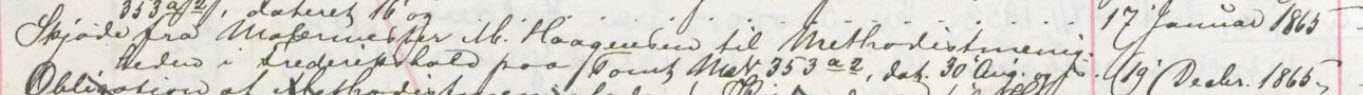 353 a 2, dateret 16 og 17 Januar 1865
Skjøde fra Malermester M. Haagensen til Methodistmenig-
heden i Frederikshald paa Tomt Mat. 353 a 2, dat. 30 Aug. og 19 Decbr. 1865,
Obligation af Methodistmenigheden